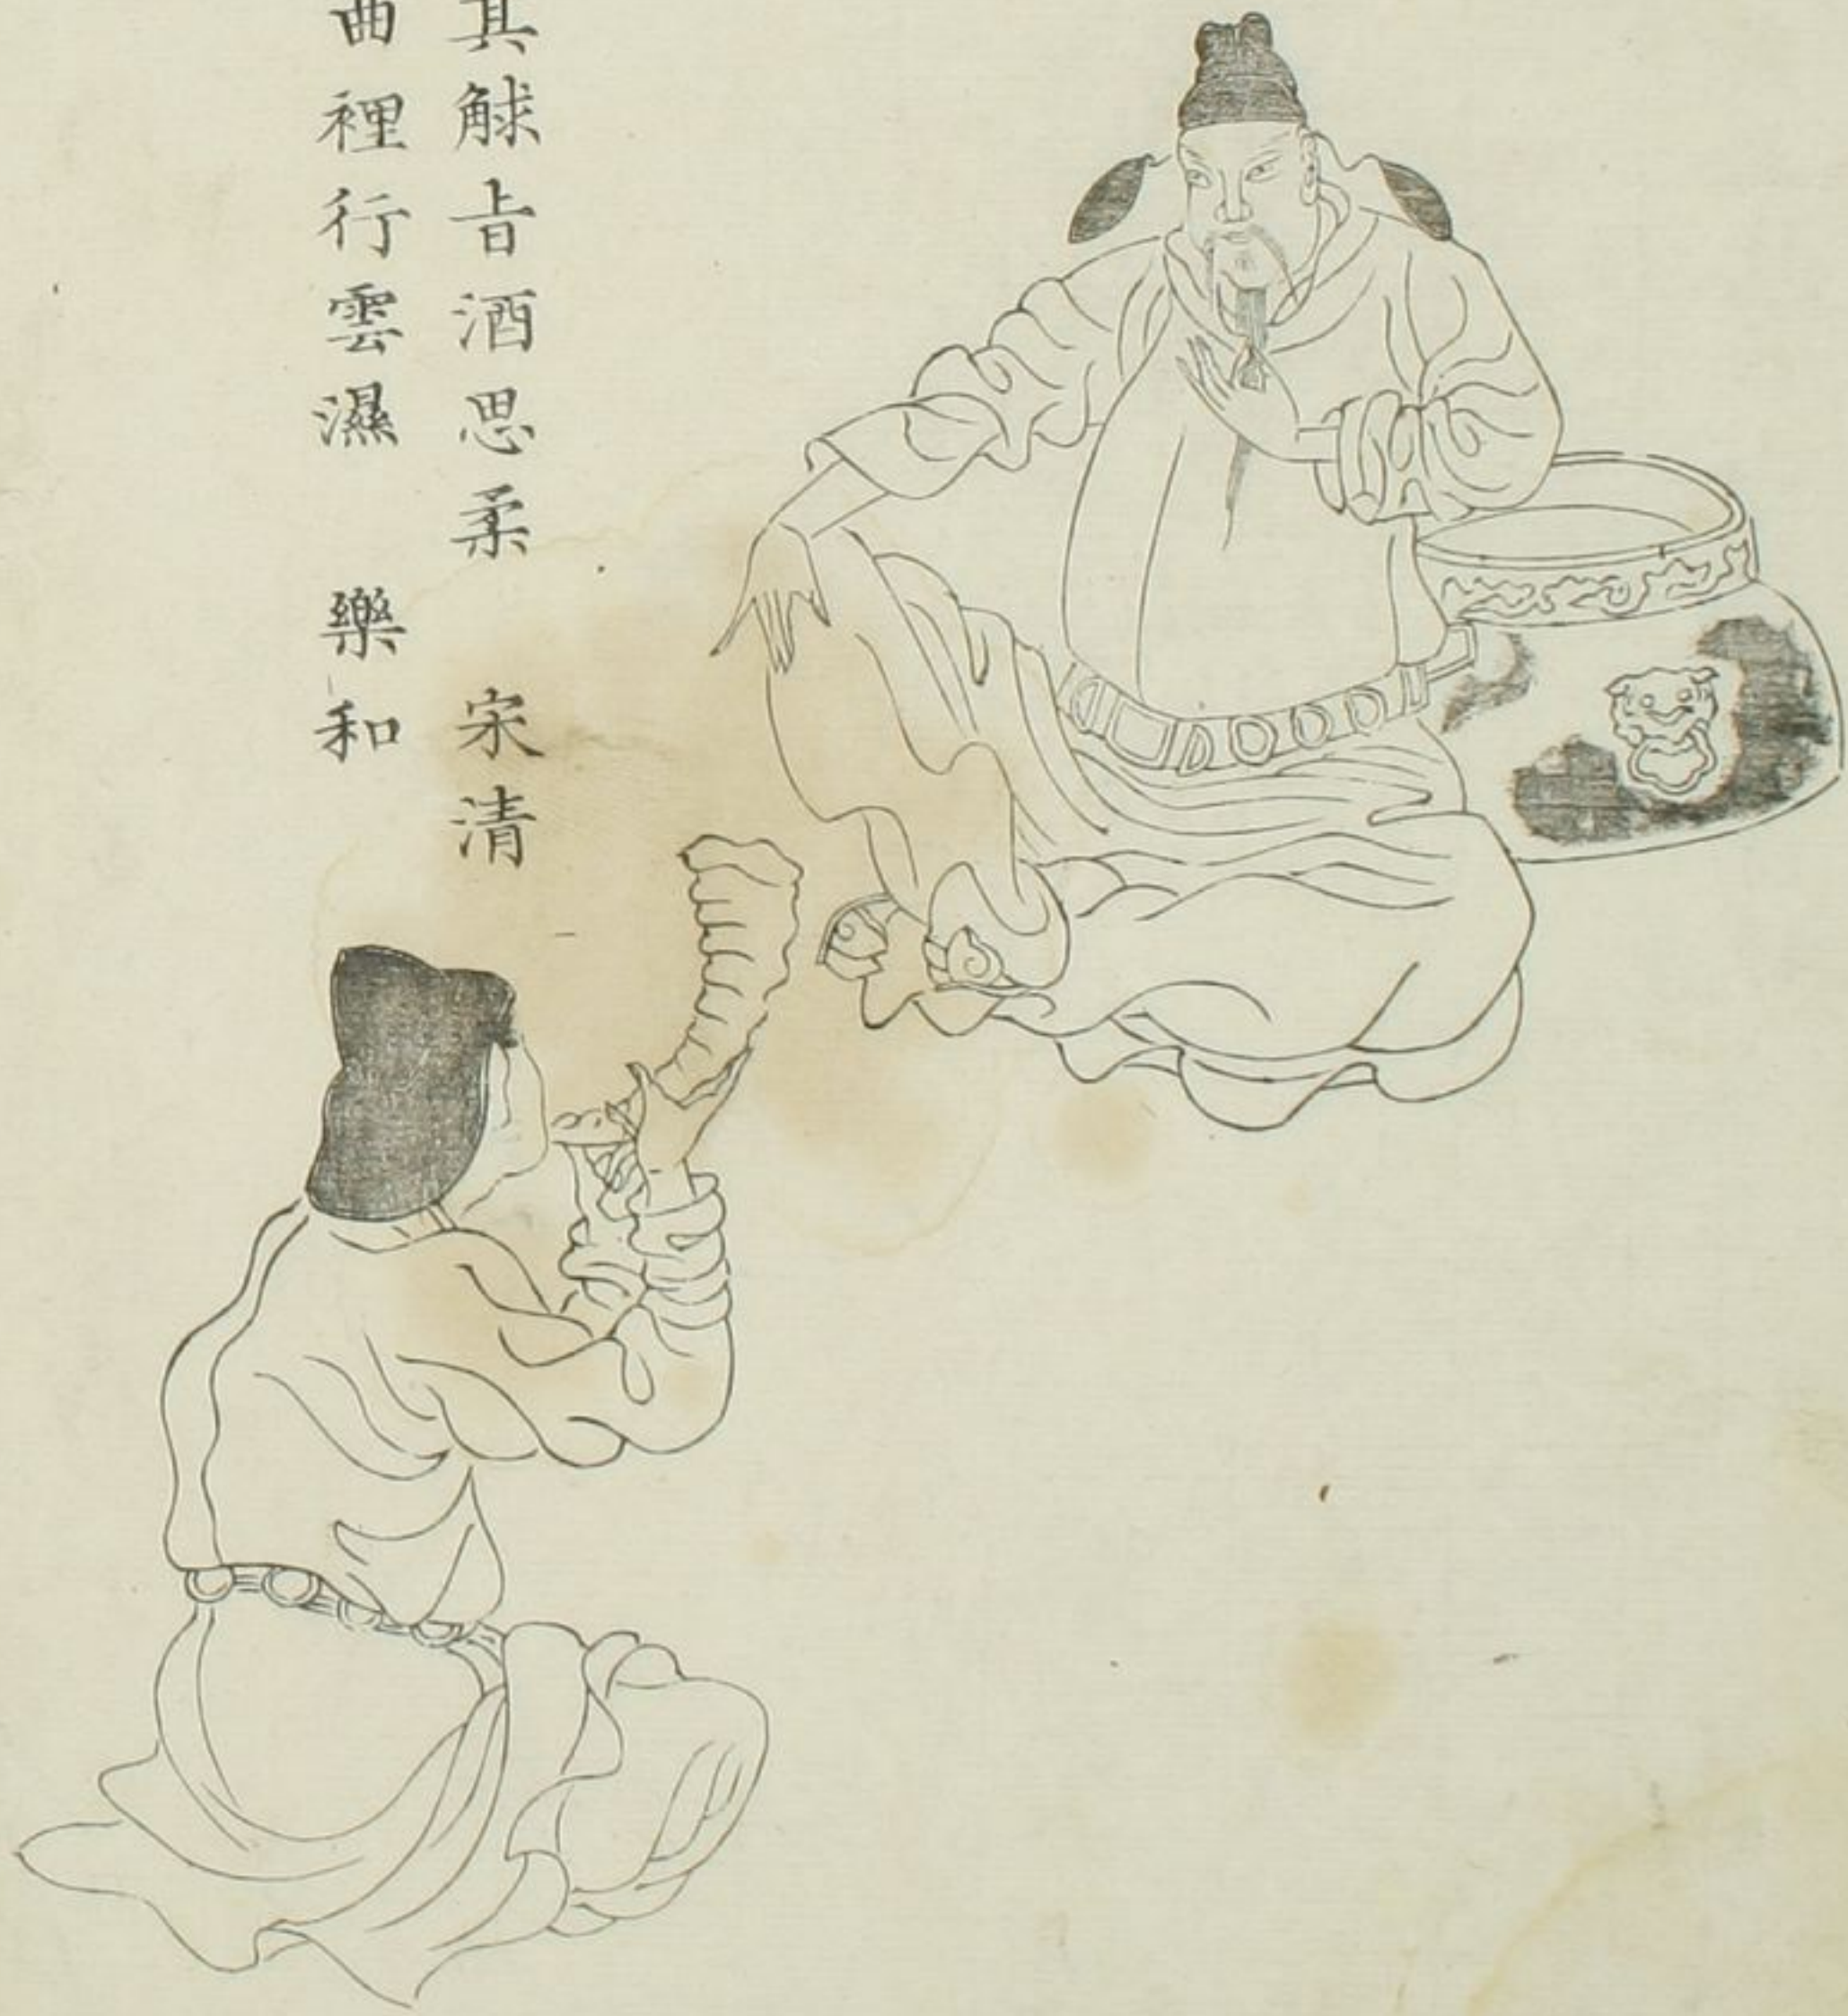 其觩㫖酒思柔 宋清
曲裡行雲濕 樂和